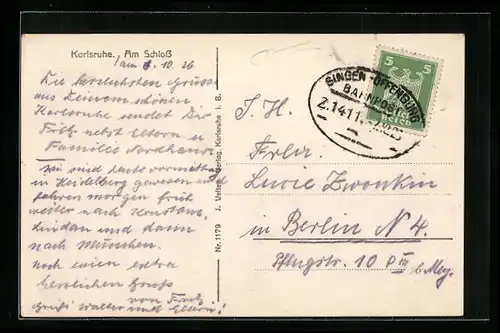 Karlsruhe. Am Schloß
am 6.10.26
Die herzlichsten Grüsse
aus Deinem schönen
Karlsruhe sendet Dir
Fritz nebst Eltern u
Familie
sind heute vormittag
in Heidelberg gewesen und
fahren morgen früh
weiter nach Konstanz,
Lindau und dann
nach München.
Noch einen extra
herzlichen Gruss
von Fritz
Gruß Walter und Eltern!
Nr. 1179 J. Velten, Verlag, Karlsruhe i. B.
5 5
SINGEN-OFFENBURG
BAHNPOST
Z.1411
Frln.
Lucie Zwonkin
in Berlin N 4.
Pflugstr. 10 P III
b/Mey.